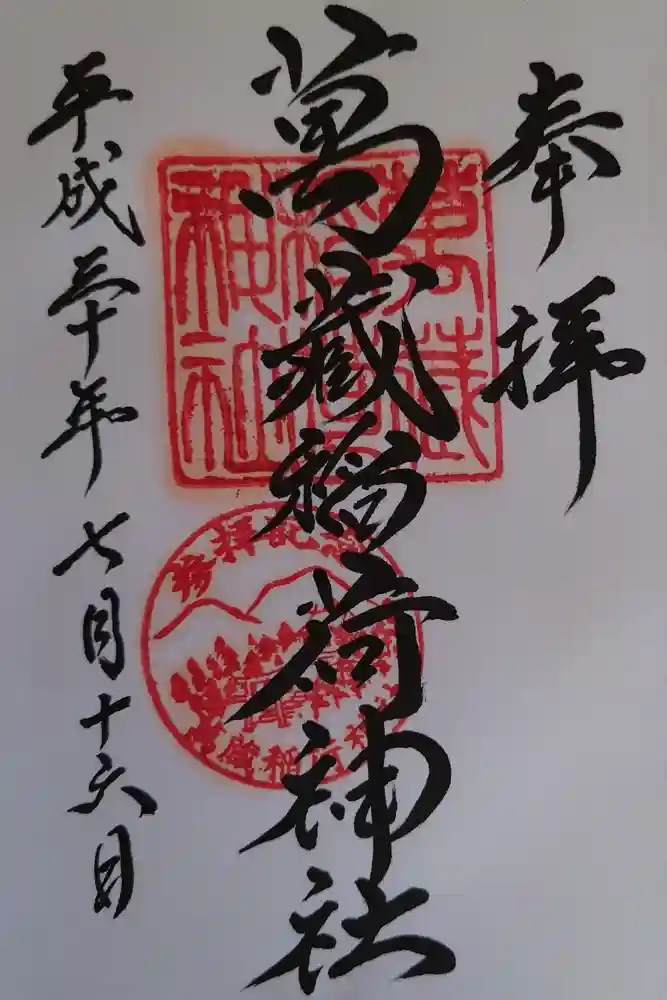 奉拝
萬蔵稲荷神社
平成三十年七月十六日
萬蔵稲荷神社
参拝記念
萬蔵稲荷神社